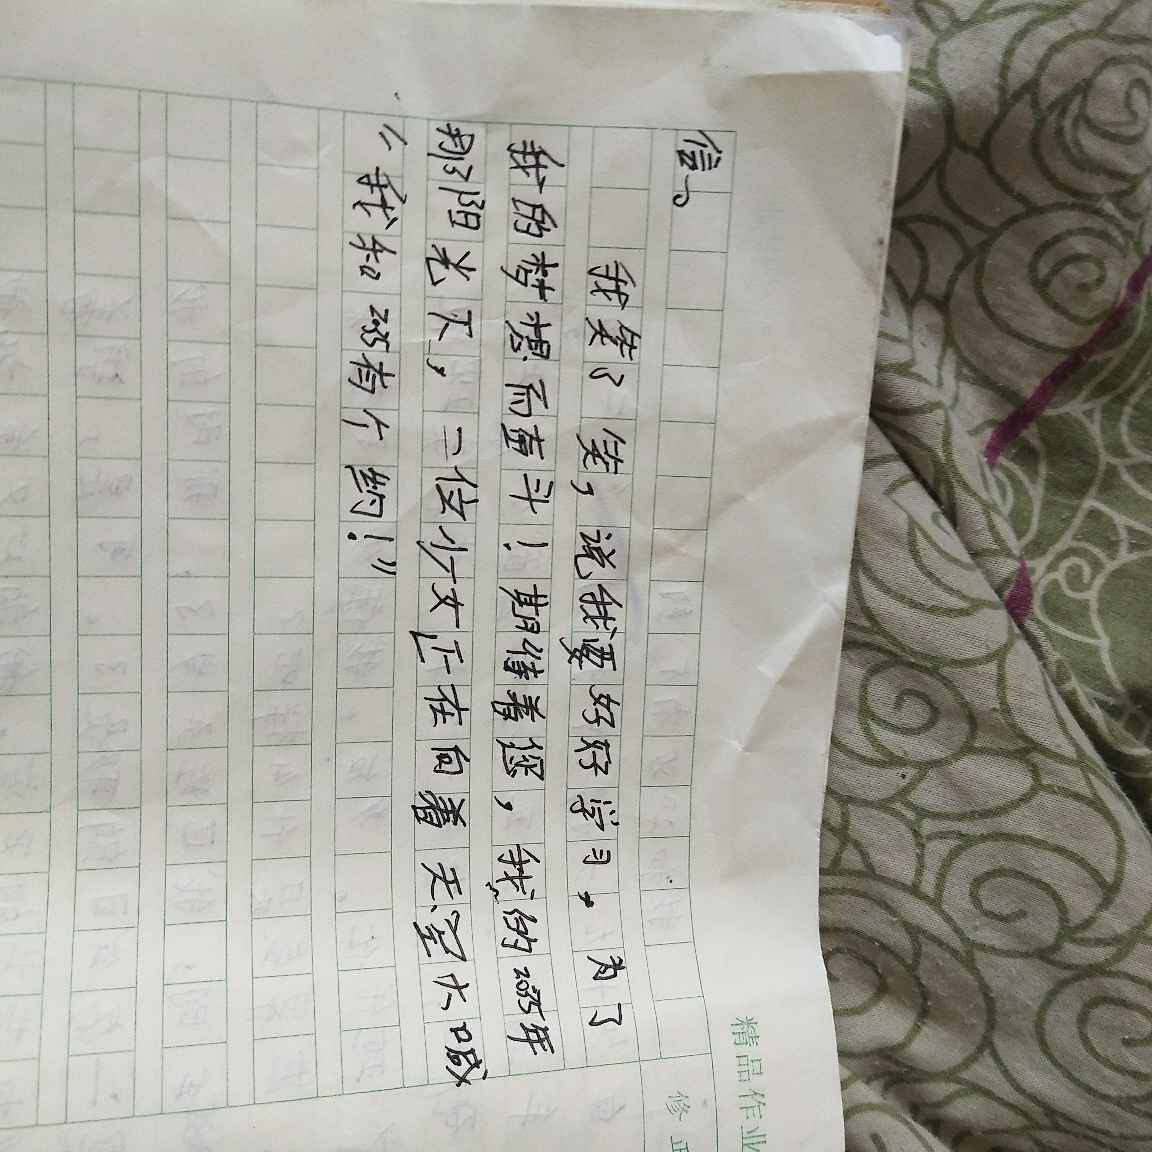 精品作业
修正
信。
我笑了笑，说我要好好学习，为了
我的梦想而奋斗！期待着您，我的2035年
那阳光下，一位少女正在向着天空大喊
“我和2035有个约！”